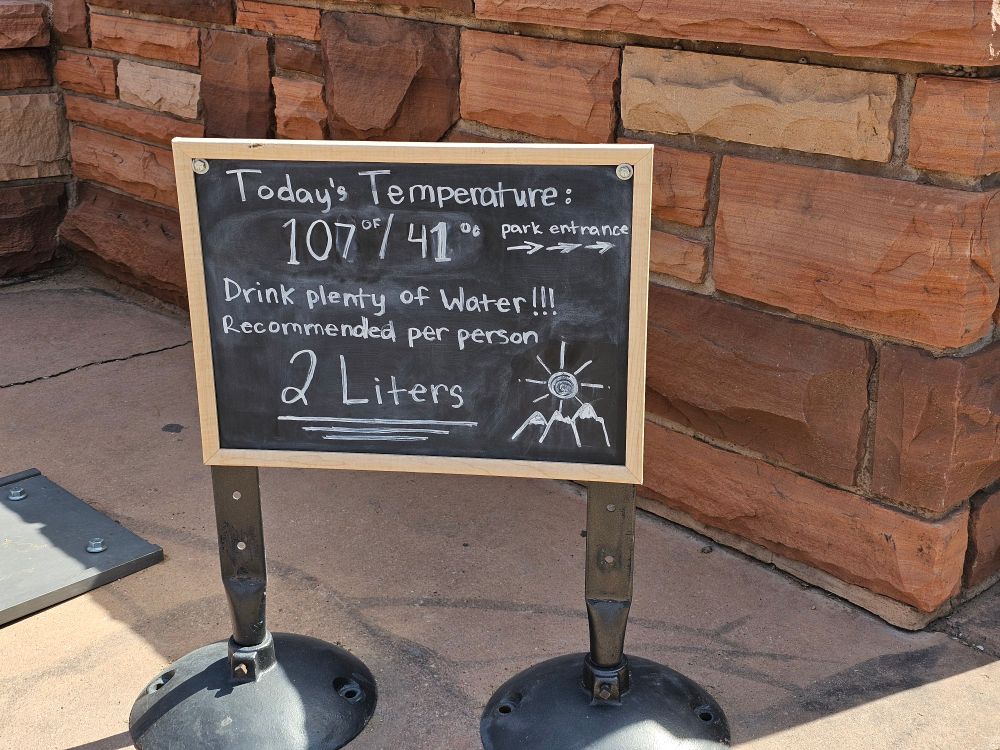 Today's Temperature:
107°F/41°C
park entrance
Drink plenty of Water!!!
Recommended per person
2 Liters